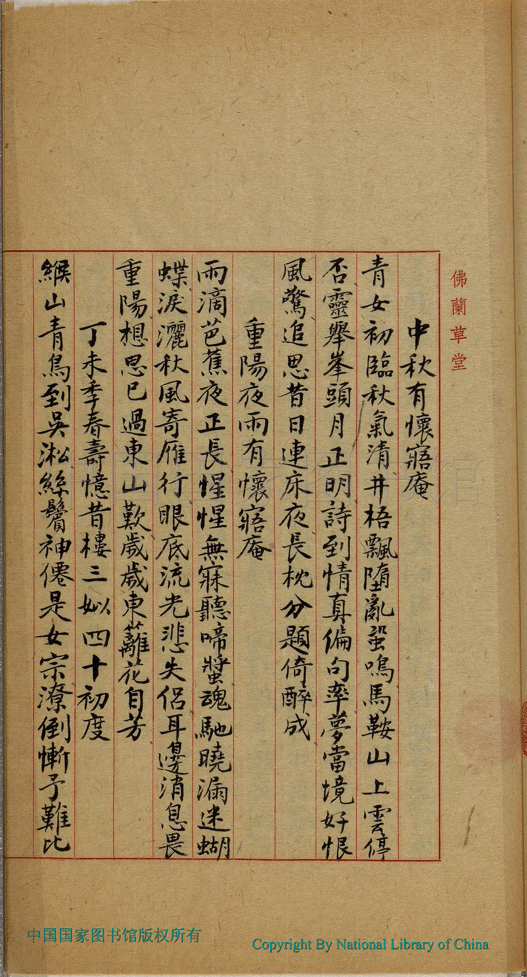 佛蘭草堂
中秋有懷寤庵
青女初臨秋氣清井梧飄墮亂蛩鳴馬鞍山上雲停
否靈舉峯頭月正明詩到情真偏句率夢當境好恨
風驚追思昔日連床夜長枕分題倚醉成
重陽夜雨有懷寤庵
雨滴芭蕉夜正長惺惺無寐聽啼螿魂馳曉漏迷蝴
蝶淚灑秋風寄雁行眼底流光悲失侶耳邊消息畏
重陽想思已過東山歎歲歲東蘺花自芳
丁未季春壽憶昔樓三姒四十初度
緱山青鳥到吳淞絲鬢神僊是女宗潦倒慚予難比
中国国家图书馆版权所有
Copyright By National Library of China